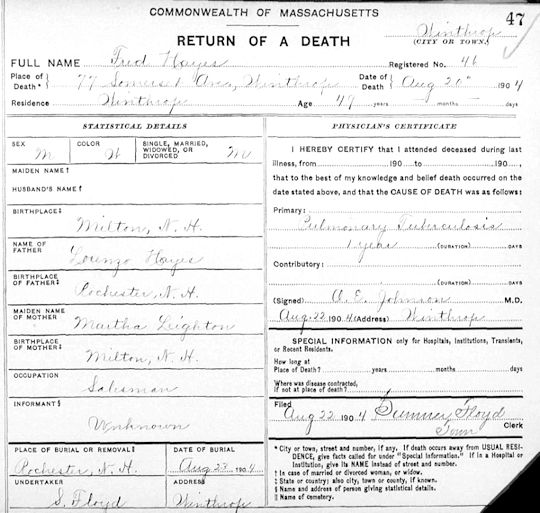 COMMONWEALTH OF MASSACHUSETTS
47
RETURN OF A DEATH
Winthrop
(CITY OR TOWN.)
FULL NAME Fred Hayes Registered No. 46
Place of Death * } 77 Somerset Ave, Winthrop Date of Death } Aug 20" 1904
Residence Winthrop Age 49 years months days
STATISTICAL DETAILS
SEX M COLOR W SINGLE, MARRIED, WIDOWED, OR DIVORCED M
MAIDEN NAME †
HUSBAND'S NAME †
BIRTHPLACE ‡
Milton, N. H.
NAME OF FATHER
Lorenzo Hayes
BIRTHPLACE OF FATHER ‡
Rochester, N. H.
MAIDEN NAME OF MOTHER
Martha Leighton
BIRTHPLACE OF MOTHER ‡
Milton, N. H.
OCCUPATION
Salesman
INFORMANT §
Unknown
PLACE OF BURIAL OR REMOVAL ‖ DATE OF BURIAL
Rochester, N. H. Aug 23 1904
UNDERTAKER ADDRESS
S. Floyd Winthrop
PHYSICIAN'S CERTIFICATE
I HEREBY CERTIFY that I attended deceased during last
illness, from 190 to 190 ,
that to the best of my knowledge and belief death occurred on the
date stated above, and that the CAUSE OF DEATH was as follows:
Primary:
Pulmonary Tuberculosis
1 year (DURATION) DAYS
Contributory:
(DURATION) DAYS
(Signed) A. E. Johnson M.D.
Aug. 22 1904 (Address) Winthrop
SPECIAL INFORMATION only for Hospitals, Institutions, Transients,
or Recent Residents.
How long at
Place of Death? years months days
Where was disease contracted,
if not at place of death?
Filed
Aug 22 1904 Sumner Floyd
Town Clerk
* City or town, street and number, if any. If death occurs away from USUAL RESI-
DENCE, give facts called for under "Special Information." If in a Hospital or
Institution, give its NAME instead of street and number.
† In case of married or divorced woman, or widow.
‡ State or country; also city, town or county, if known.
§ Name and address of person giving statistical details.
‖ Name of cemetery.